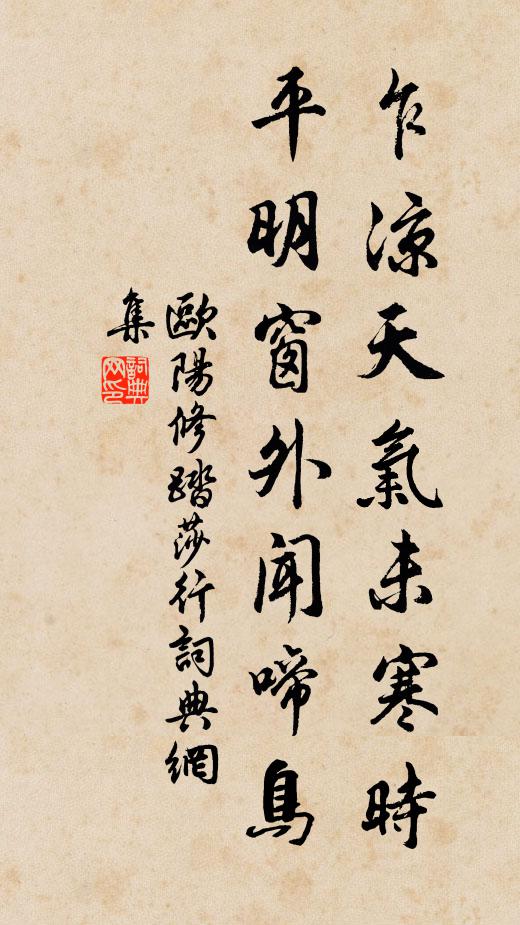 乍涼天氣未寒時
平明窗外聞啼鳥
歐陽修踏莎行詞典網
集
詞典网印